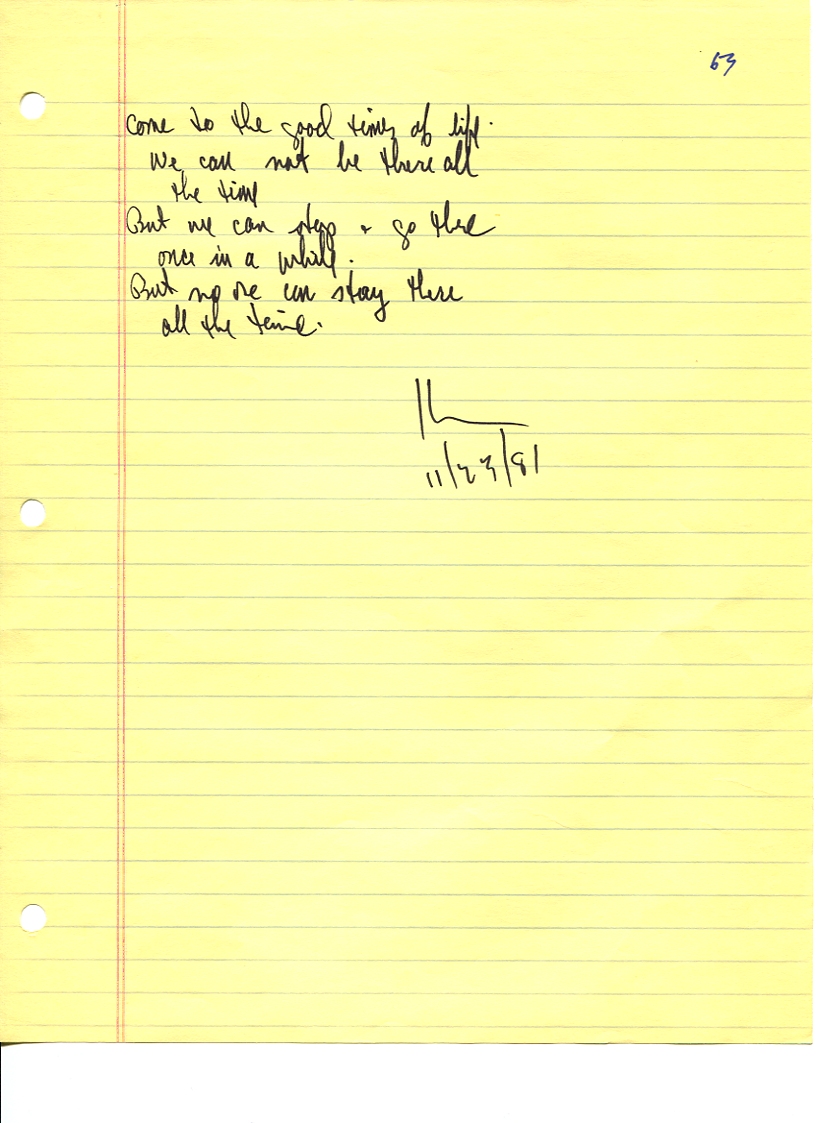 63
Come to the good times of life.
We can not be there all
the time
But we can stop + go there
once in a while.
But no one can stay there
all the time.
11/23/81